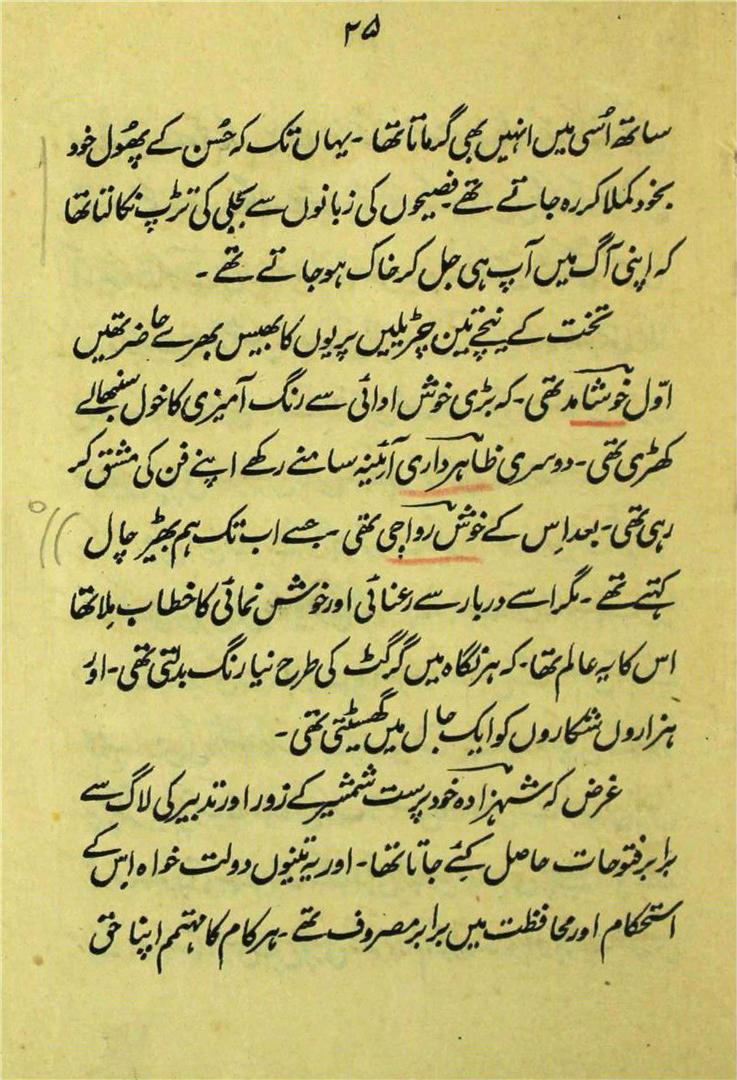 ۲۵
ساتھ اُسی میں انہیں بھی گرماتا تھا ۔ یہاں تک کہ حُسن کے پھُول خود
بخود کملا کر رہ جاتے تھے ۔ فصیحوں کی زبانوں سے بجلی کی تڑپ نکالتا تھا
کہ اپنی آگ میں آپ ہی جل کر خاک ہو جاتے تھے ۔
تخت کے نیچے تین چڑیلیں پریوں کا بھیس بھرے حاضر تھیں
اوّل خوشامد تھی ۔ کہ بڑی خوش ادائی سے رنگ آمیزی کا خول سنبھالے
کھڑی تھی ۔ دوسری ظاہرداری آئینہ سامنے رکھے اپنے فن کی مشق کر
رہی تھی ۔ بعد اِس کے خوش رواجی تھی جسے اب تک ہم بھیڑ چال
کہتے تھے ۔ مگر اسے دربار سے رعنائی اور خوش نمائی کا خطاب مِلا تھا
اس کا یہ عالم تھا ۔ کہ ہر نگاہ میں گرگٹ کی طرح نیا رنگ بدلتی تھی ۔ اور
ہزاروں شکاروں کو ایک جال میں گھسیٹتی تھی ۔
غرض کہ شہزادہ خود پرست شمشیر کے زور اور تدبیر کی لاگ سے
برابر فتوحات حاصل کئے جاتا تھا ۔ اور یہ تینوں دولت خواہ اِس کے
استحکام اور محافظت میں برابر مصروف تھے ۔ ہر کام کا مہتمم اپنا حق